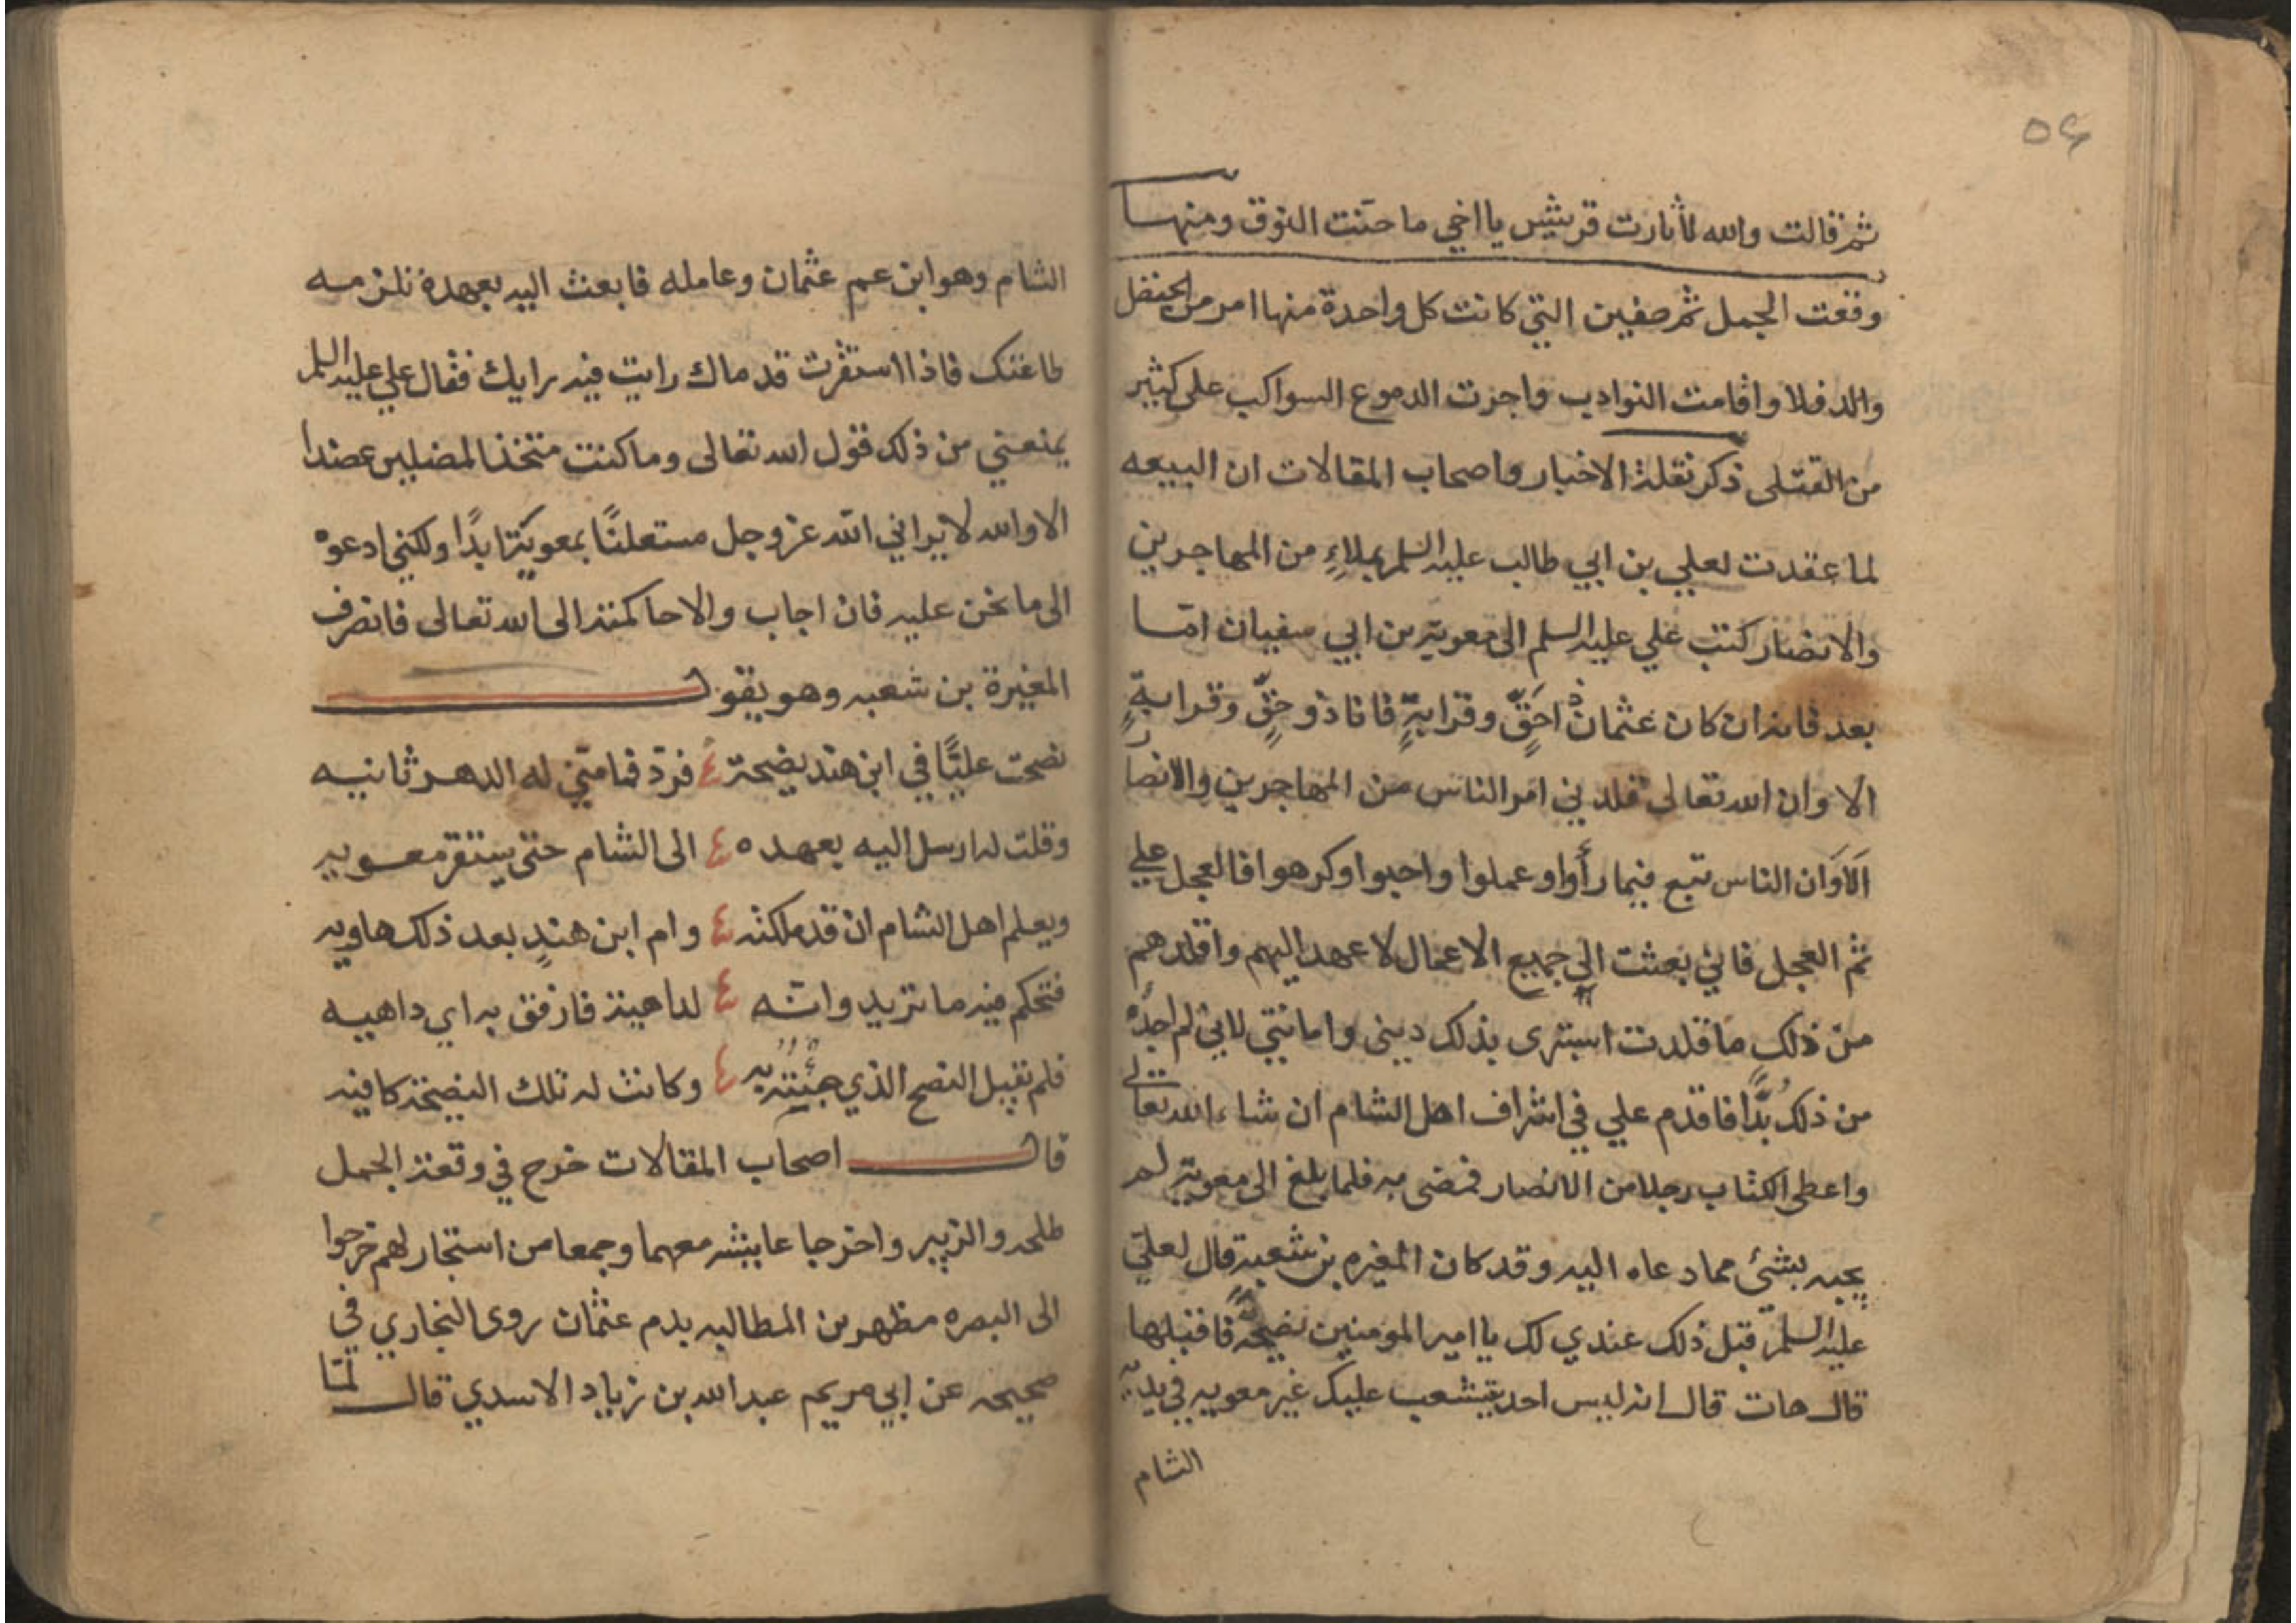 ٥٤
ثم قالت والله لا ثارت قريش يا اخي ما حنت النوق ومنها
وقعت الجمل ثم صفين التي كانت كل واحدة منها امر من الحنظل
والدفلا واقامت النوادب واجرت الدموع السواكب على كثير
من القتلى ذكر نقلة الاخبار واصحاب المقالات ان البيعه
لما عقدت لعلي بن ابي طالب عليه السلم بملاءٍ من المهاجرين
والانصار كتب علي عليه السلم الى معوية بن ابي سفيان امّا
بعد فانه ان كان عثمان ذا حَقٍّ وقرابةٍ فانا ذو حقٍّ وقرابةٍ
الا وان الله تعالى قلدني امر الناس من المهاجرين والانصار
اَلاَوَان الناس تبع فيما رأوا وعملوا واحبوا وكرهوا فالعجل علي
ثم العجل فاني بعثت الى جميع الاعمال لاعهد اليهم واقلدهم
من ذلك ما قلدت استبرى بذلك ديني وامانتي لاني لم اجدُه
من ذلك بُدًّا فاقدم علي في اشراف اهل الشام ان شاء الله تعالى
واعطى الكتاب رجلا من الانصار فمضى به فلما بلغ الى معوية لم
يجبه بشئ مما دعاه اليه وقد كان المغيره بن شعبة قال لعليّ
عليه السلم قبل ذلك عندي لك يا امير المومنين نصيحةً فاقبلها
قال هات قال انه ليس احد يتشعب عليك غير معويه في يديه
الشام
الشام وهو ابن عم عثمان وعامله فابعث اليه بعهده تلزمه
طاعتك فاذا استقرت قدماك رايت فيه برايك فقال علي عليه السلم
يمنعني من ذلك قول الله تعالى وما كنت متخذ المضلين عضدا
الا والله لا يراني الله عز وجل مستعلنًا بمعوية ابدًا ولكني ادعوه
الى ما نحن عليه فان اجاب والا حاكمته الى الله تعالى فانصرف
المغيرة بن شعبه وهو يقول
نصحت عليًّا في ابن هند نصيحة ٤ فردّ فما متني له الدهر ثانيه
وقلت له ارسل اليه بعهده ٤ الى الشام حتى يستقر معويه
ويعلم اهل الشام ان قد ملكته ٤ وام ابن هندٍ بعد ذلك هاويه
فتحكم فيه ما تريد وانّه ٤ لداهية فارفق به اي داهيه
فلم يقبل النصح الذي جئته به ٤ وكانت له تلك النصيحة كافيه
قال اصحاب المقالات خرج في وقعة الجمل
طلحه والزبير واخرجا عايشه معهما وجمعا من استجار لهم خرجوا
الى البصره مظهرين المطالبه بدم عثمان روى البخاري في
صحيحه عن ابي مريم عبد الله بن زياد الاسدي قال لمّا